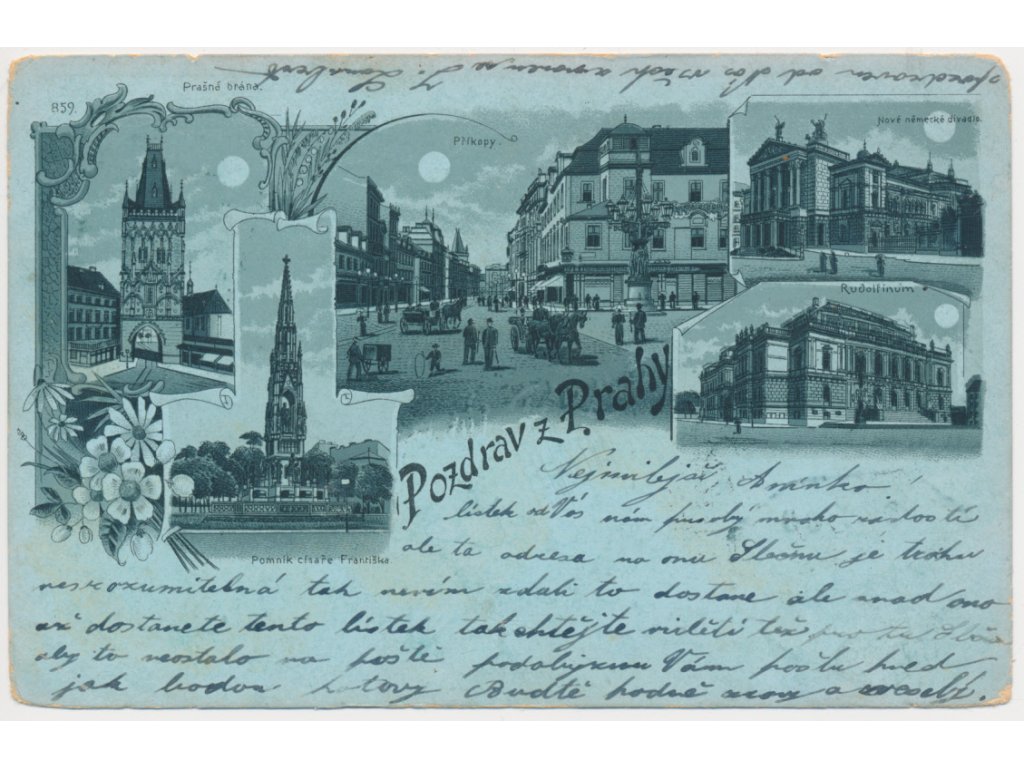 859.
Prašná brána.
Příkopy.
Nové německé divadlo.
Rudolfinum
Pomník císaře Františka.
Pozdrav z Prahy
Nejmilejší Aninko!
lístek od Vás nám působý mnoho radosti
ale ta adresa na onu Slečnu je trochu
nesrozumitelná tak nevím zdali to dostane ale snad ono
až dostanete tento lístek tak chtějte viděti též pro tu
aby to neostalo na poště Vám pošlu hned
jak budou hotovy Buďtě hodně zdrav a veselí.
pozdraven od nás všech a